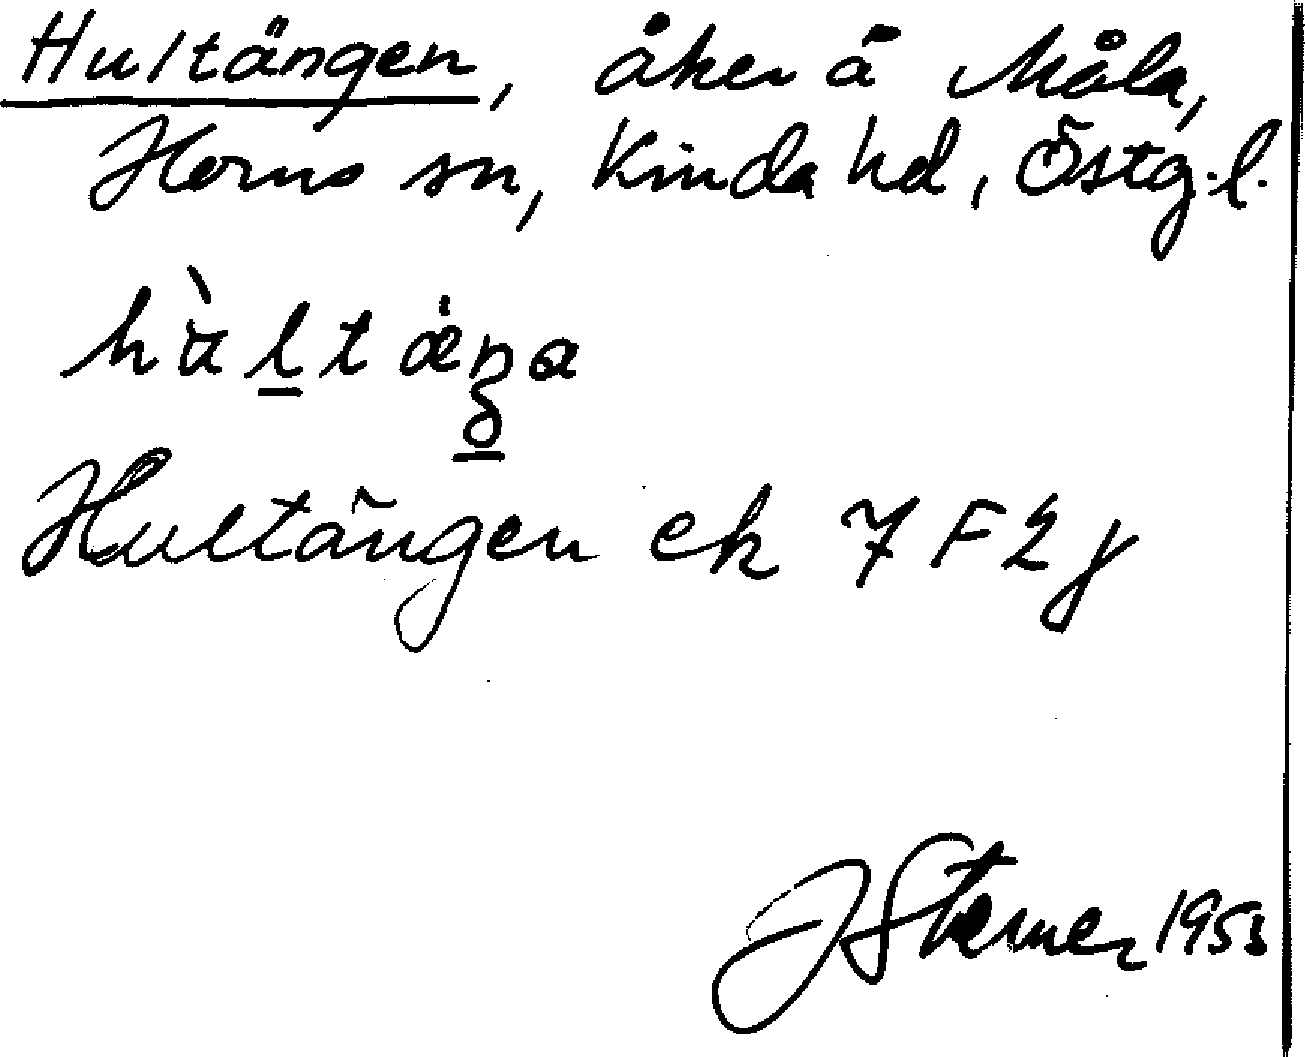 Hultängen, åker å Måla,
Horns sn, Kinda hd, Östg.l.
hùltæŋa
Hultängen ek 7 F 2 j
J Sterner 1953